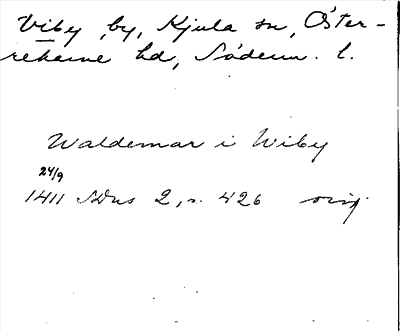 Viby, by, Kjula sn, Öster-
rekarne hd, Söderm. l.
Waldemar i Wiby
24/9
1411 SDns 2, s. 426 orig.